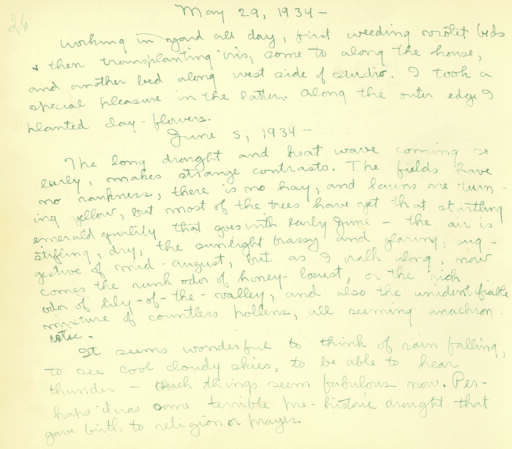 26
May 29, 1934 -
Working in yard all day, first weeding violet beds
& then transplanting iris, some to along the house,
and another bed along west side of studio. I took a
special pleasure in the latter. Along the outer edge I
planted day-flowers.
June 5, 1934 -
The long drought and heat wave coming so
early, makes strange contrasts. The fields have
no rankness, there is no hay, and lawns are turn-
ing yellow, but most of the trees have yet that startling
emerald quality that goes with early June - the air is
stifling, dry, the sunlight brassy and glaring, sug-
gestive of mid-August, but as I walk along, now
comes the rank odor of honey-locust, or the rich
odor of lily-of-the-valley, and also the unidentifiable
mixture of countless pollens, all seeming anachron-
istic.
It seems wonderful to think of rain falling,
to see cool cloudy skies, to be able to hear
thunder - such things seem fabulous now. Per-
haps it was some terrible pre-historic drought that
gave birth to religion or prayer.